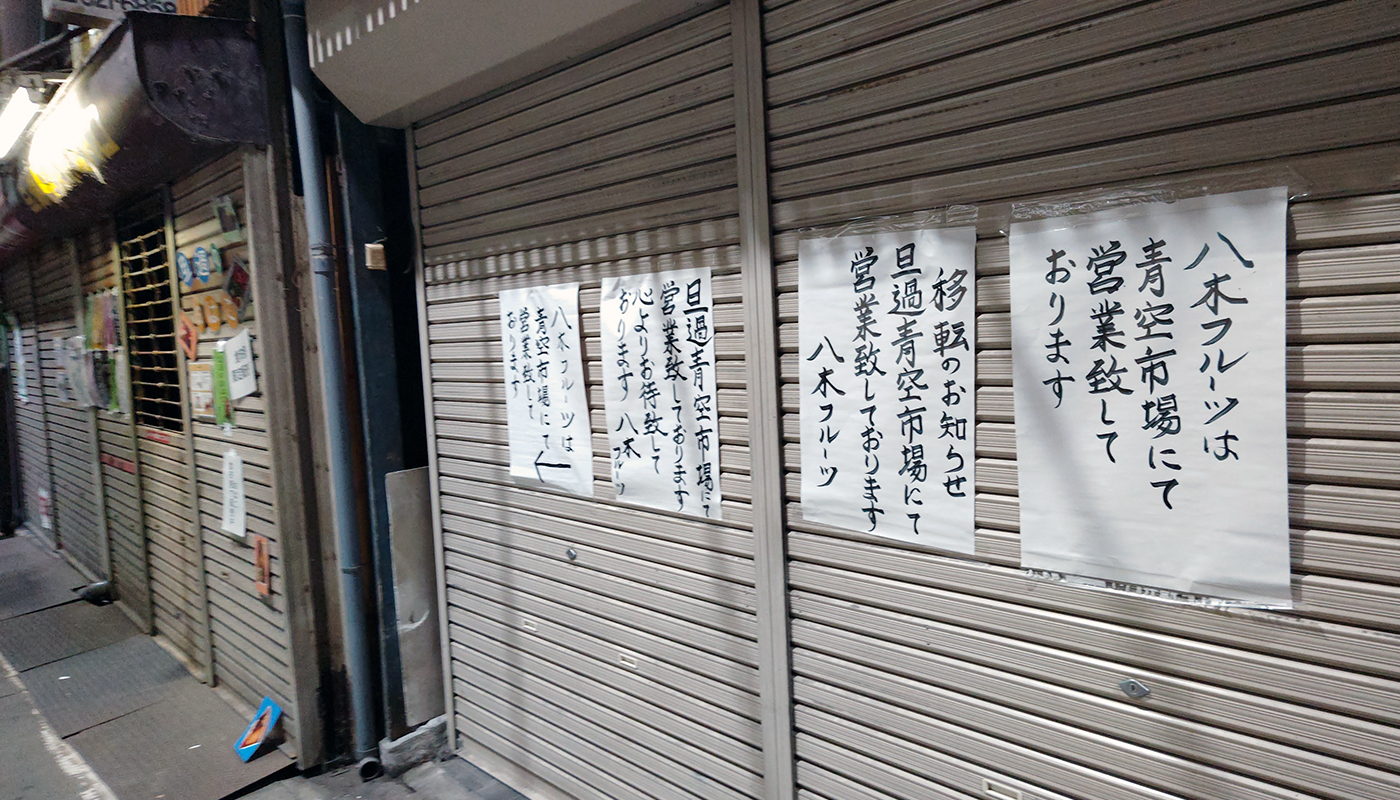 八木フルーツは
青空市場にて
営業致して
おります
移転のお知らせ
旦過青空市場にて
営業致しております
八木フルーツ
旦過青空市場にて
営業致しております
心よりお待致して
おります 八木フルーツ
八木フルーツは
青空市場にて
営業致して
おります
←